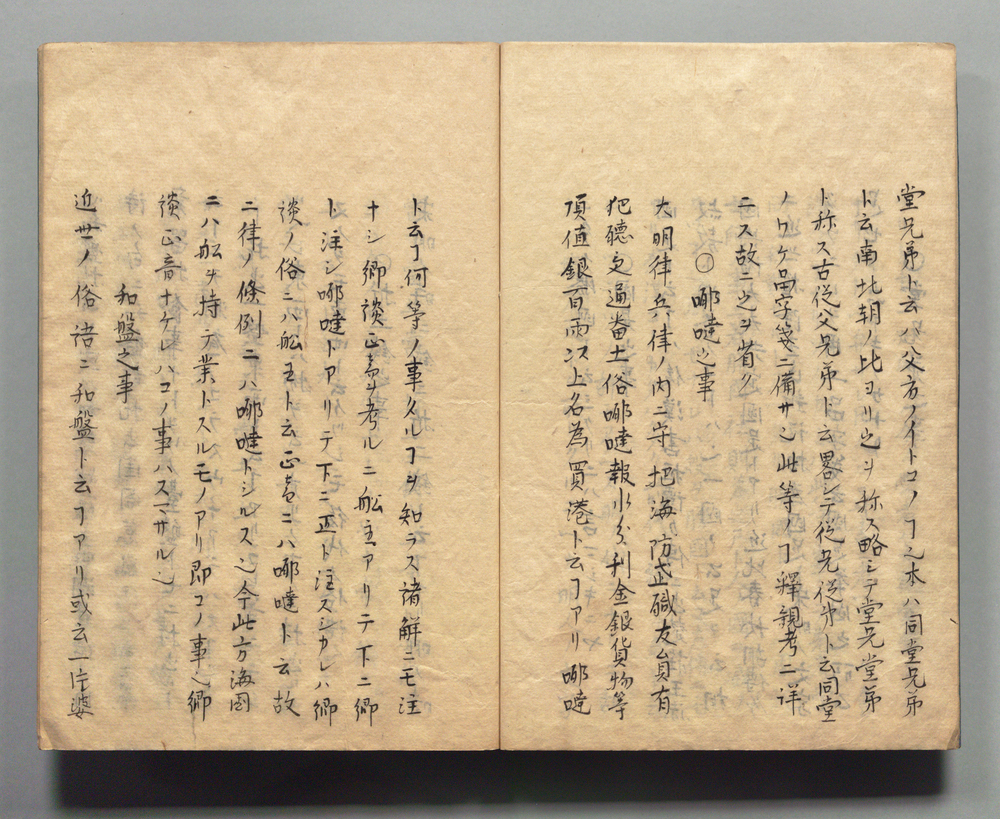 堂兄弟ト云ハ父方ノイトコノヿ也本ハ同堂兄弟
ト云南北朝ノ比ヨリ之ヲ称ス略シテ堂兄堂弟
ト称ス古從父兄弟ト云畧シテ從兄從弟ト云同堂
ノワケ品字箋ニ備サ也此等ノヿ釋親考ニ詳
ニス故ニ之ヲ省ク
〇 哪噠之事
大明律兵律ノ内ニ守把海防武職官員有
犯聽受通番土俗哪噠報水分利金銀貨物等
項值銀百両以上名為買港ト云ヿアリ哪噠
ト云ヿ何等ノ事タルヿヲ知ラス諸解ニモ注
ナシ郷談正音ヲ考ルニ舩主アリテ下ニ郷
ト注シ哪噠トアリテ下ニ正ト注スシカレハ郷
談ノ俗ニハ舩主ト云正音ニハ哪噠ト云故
ニ律ノ條例ニハ哪噠トシルス也今此方海国
ニハ舩ヲ持テ業トスルモノアリ即コノ事也郷
談正音ナケレハコノ事ハスマサル也
和盤之事
近世ノ俗語ニ和盤ト云ヿアリ或云一片婆